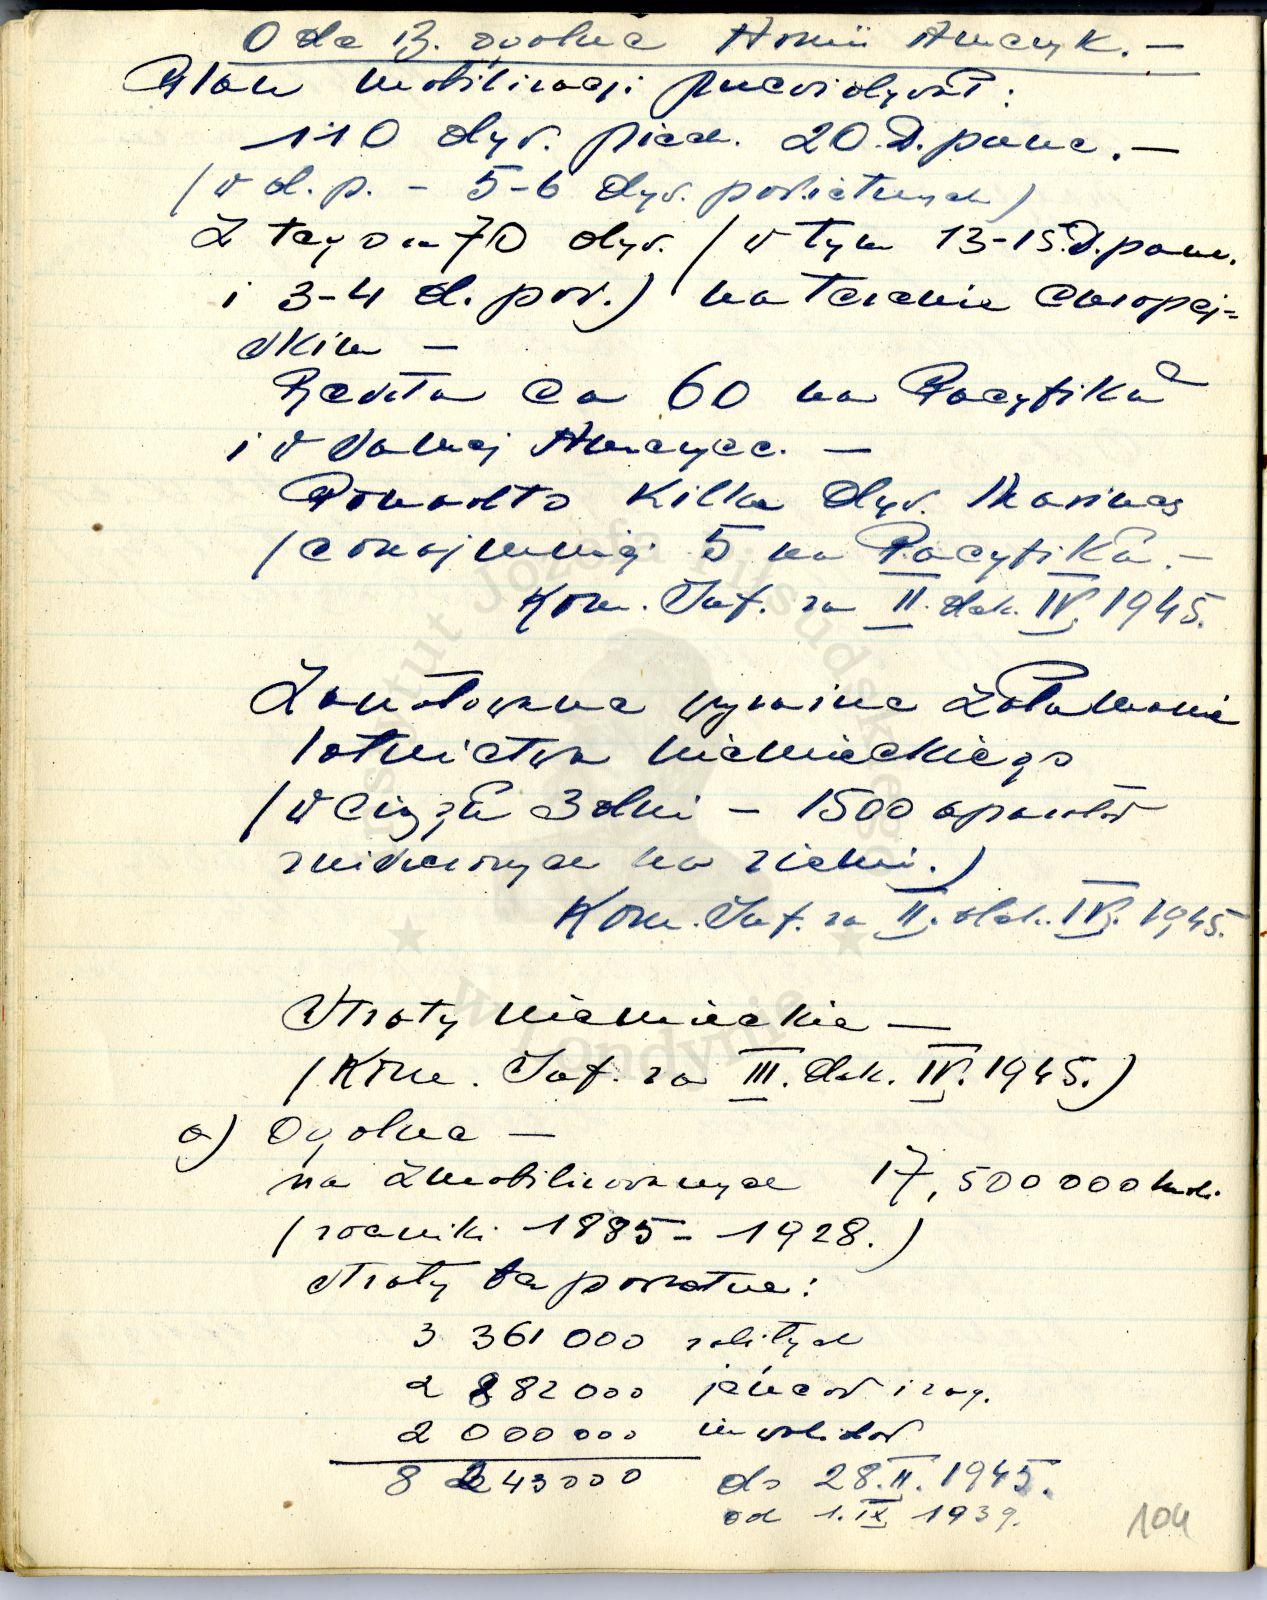 O de B. ogólne Armii Ameryk. —
Plan mobilizacji przewidywał:
110 dyw. piech. 20 D. panc. —
(w d. p. — 5-6 dyw. powietrznych)
Z tego ca 70 dyw. (w tym 13-15 D. panc.
i 3-4 d. pow.) na terenie europej=
skim —
Reszta ca 60 na Pacyfiku
i w samej Ameryce. —
Ponadto kilka dyw. Marines
(conajmniej 5 na Pacyfiku. —
Kom. Inf. za II. dek. IV. 1945.
Zanotowane wyraźne załamanie
lotnictwa niemieckiego
(w ciągu 3 dni — 1500 aparatów
zniszczonych na ziemi.)
Kom. Inf. za II. dek. IV. 1945.
Straty niemieckie —
(Kom. Inf. za III. dek. IV. 1945.)
a) Ogólne —
na zmobilizowanych 17,500000 ludzi
(roczniki 1885 - 1928.)
straty bezpowrotne:
3 361 000 zabitych
2 882 000 jeńców i zag.
2 000 000 inwalidów
8 243 000 do 28.II. 1945.
od 1. IX 1939.
104
Instytut Józefa Piłsudskiego
w Londynie